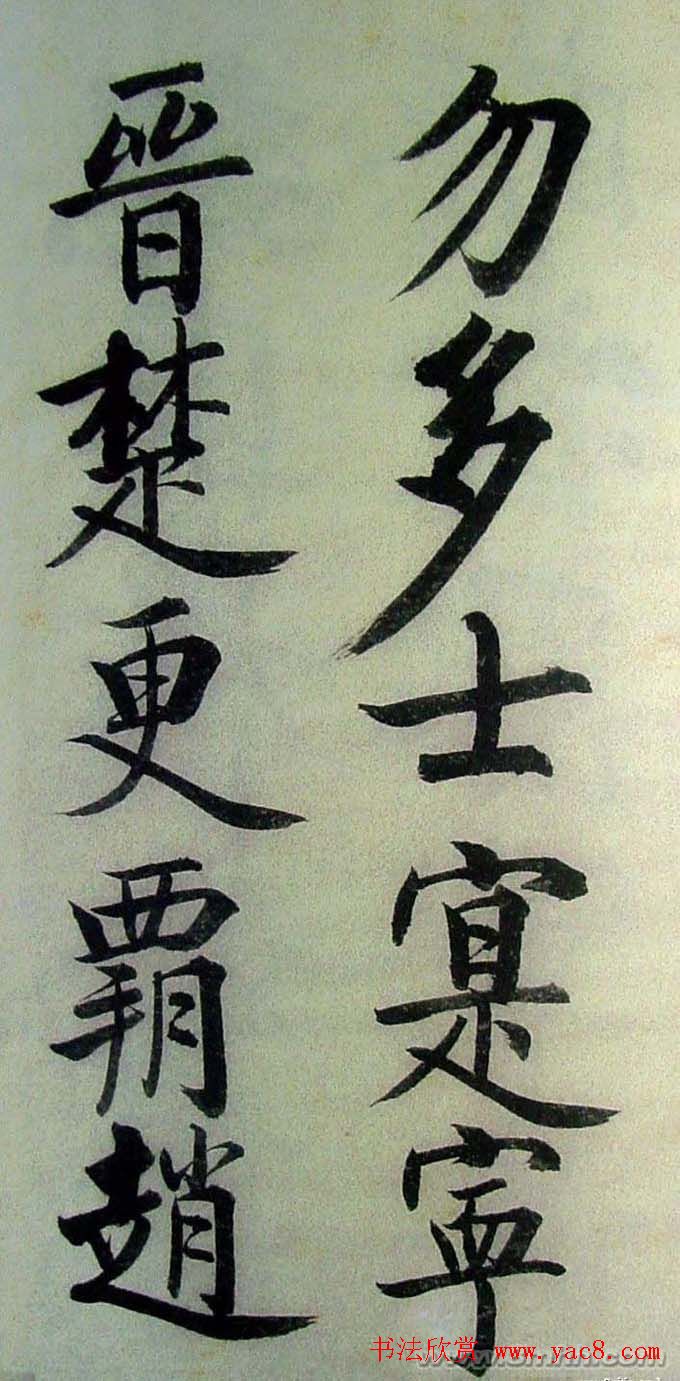 勿多士寔寧
晉楚更霸趙
书法欣赏 www.yac8.com